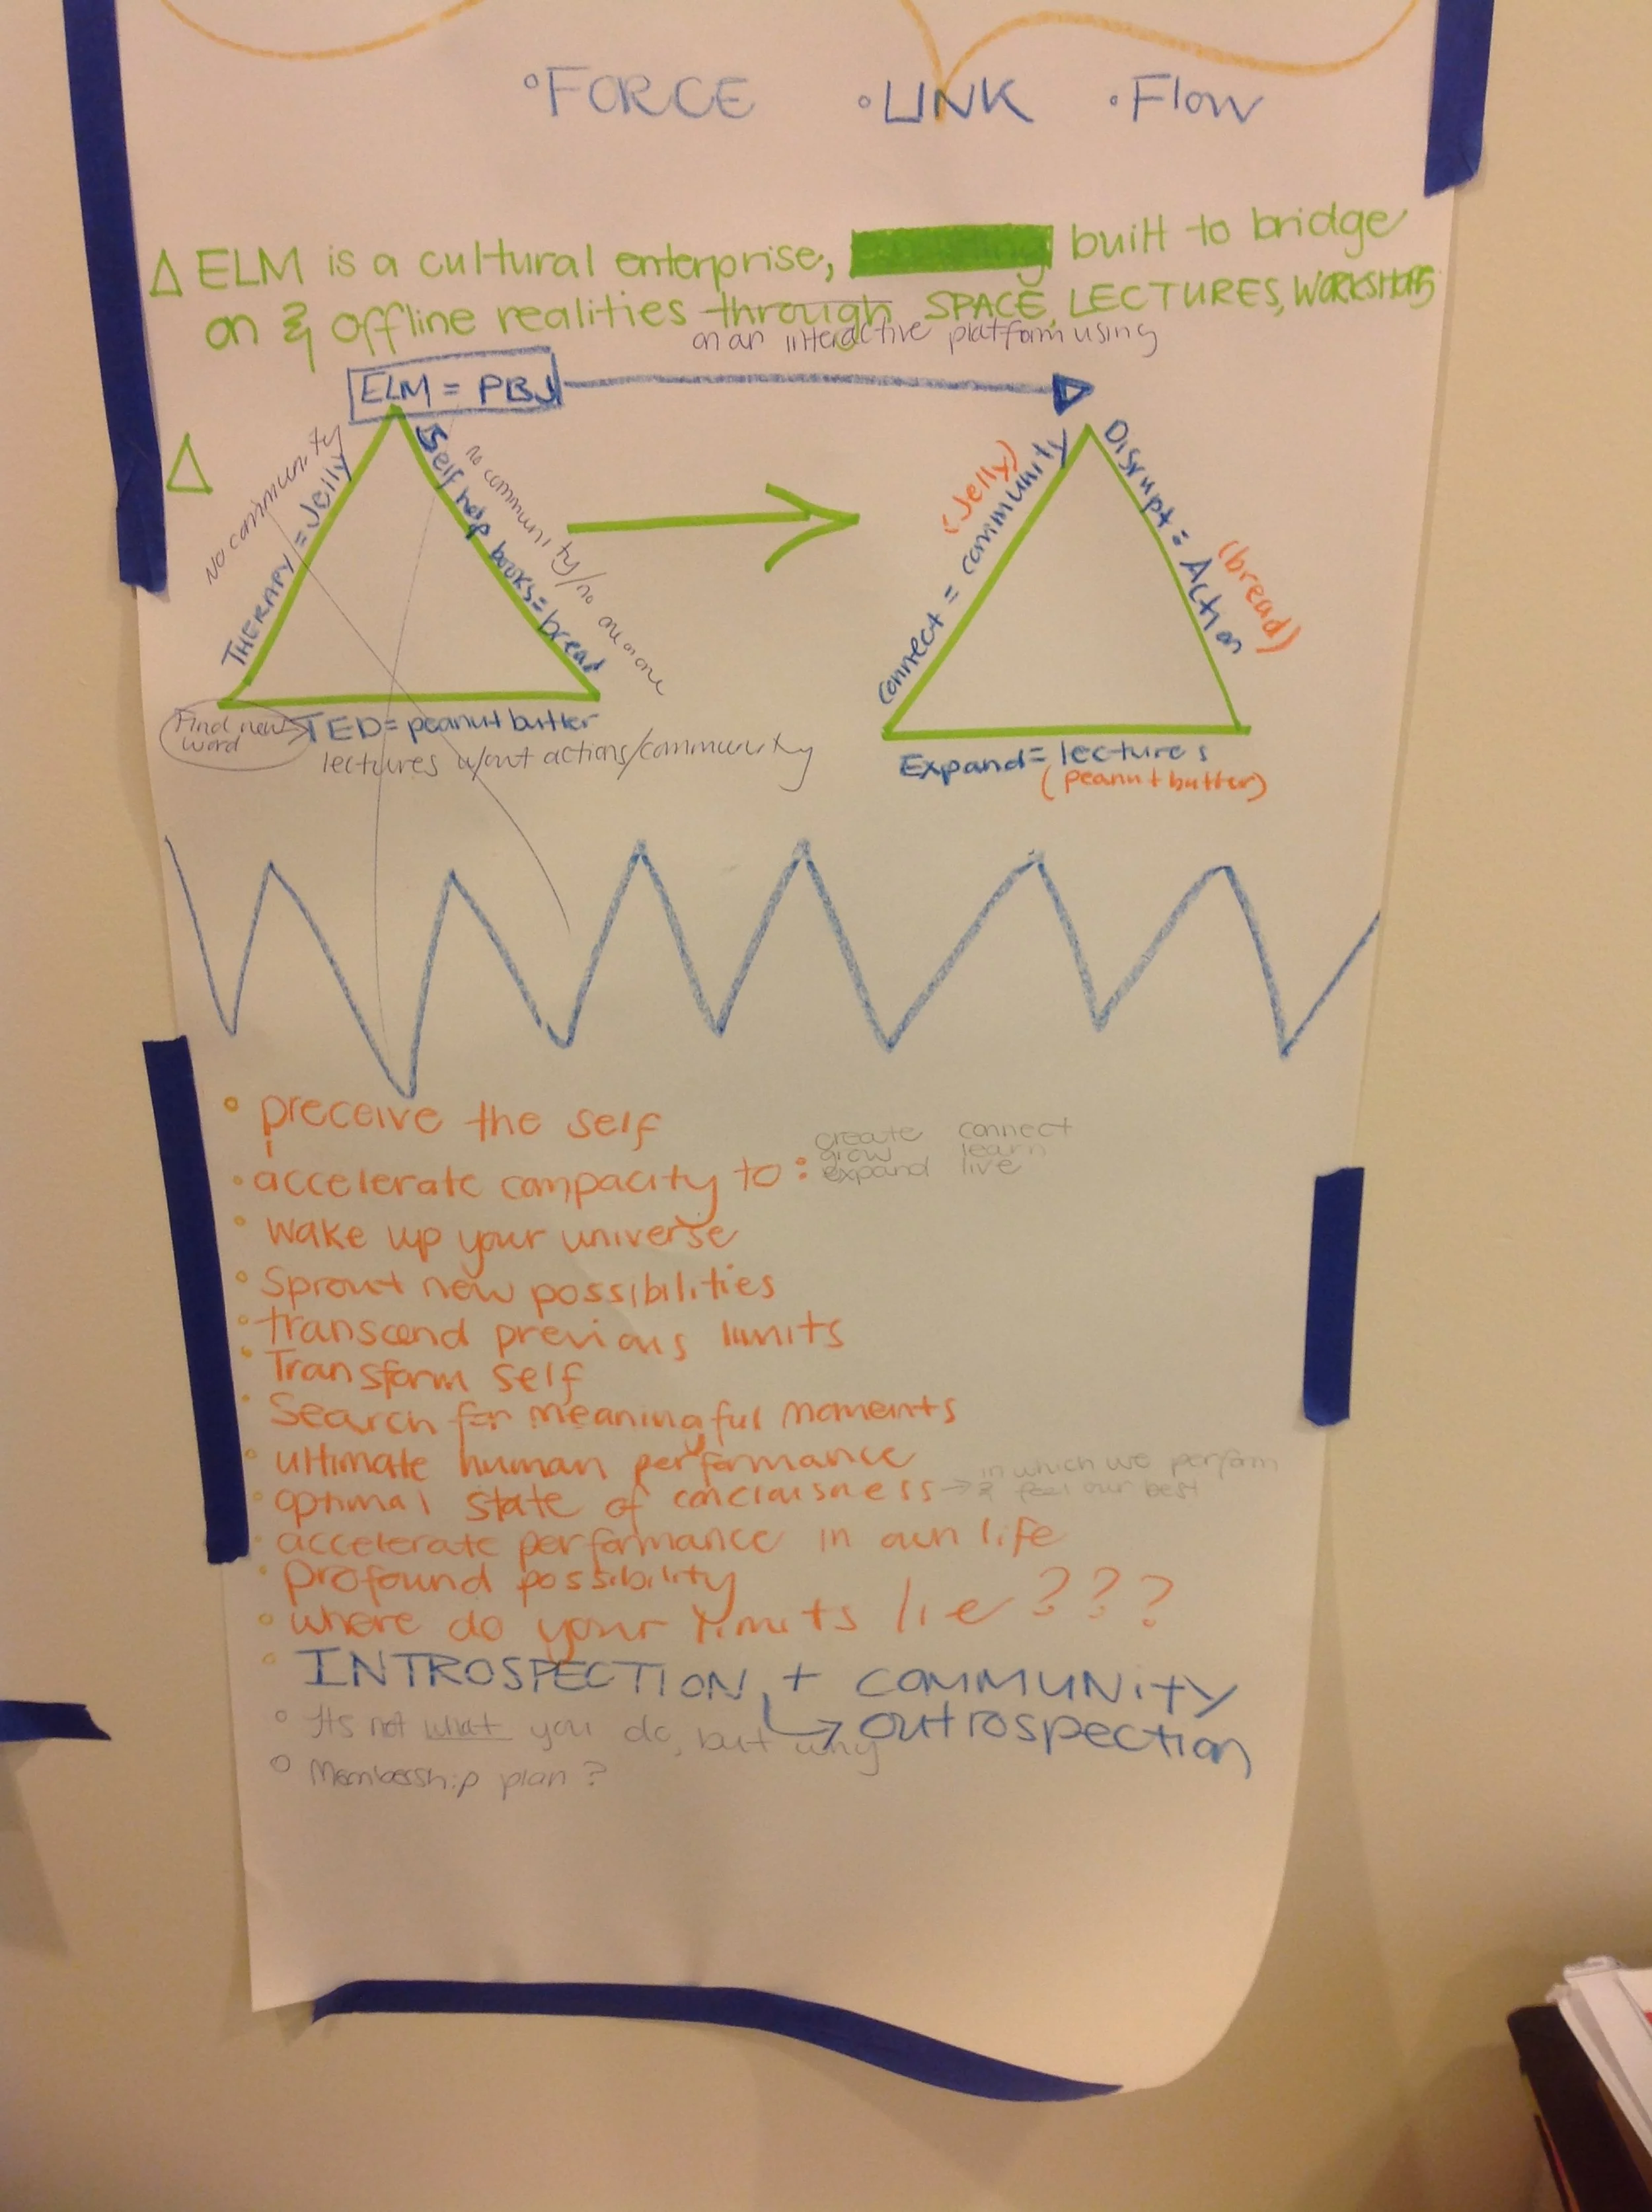 °FORCE •LINK •Flow
Δ ELM is a cultural enterprise, built to bridge
on & offline realities through SPACE, LECTURES, WORKSHOPS
on an interactive platform using
ELM = PBJ
Δ
No community
THERAPY = Jelly
Self help books = bread
no community/no one on one
Find new word
TED = peanut butter
lectures w/out actions/community
(Jelly)
connect = community
Disrupt = Action
(bread)
Expand = lectures
(peanut butter)
• preceive the self
• accelerate compacity to :
create connect
grow learn
expand live
• wake up your universe
• Sprout new possibilities
• transcend previous limits
• Transform self
• Search for meaningful moments
• ultimate human performance
• optimal state of conciousness →
in which we perform
& feel our best
• accelerate performance in own life
• Profound possibility
• where do your limits lie ???
• INTROSPECTION + COMMUNITY
↳ outrospection
° Its not what you do, but why
° Membership plan ?